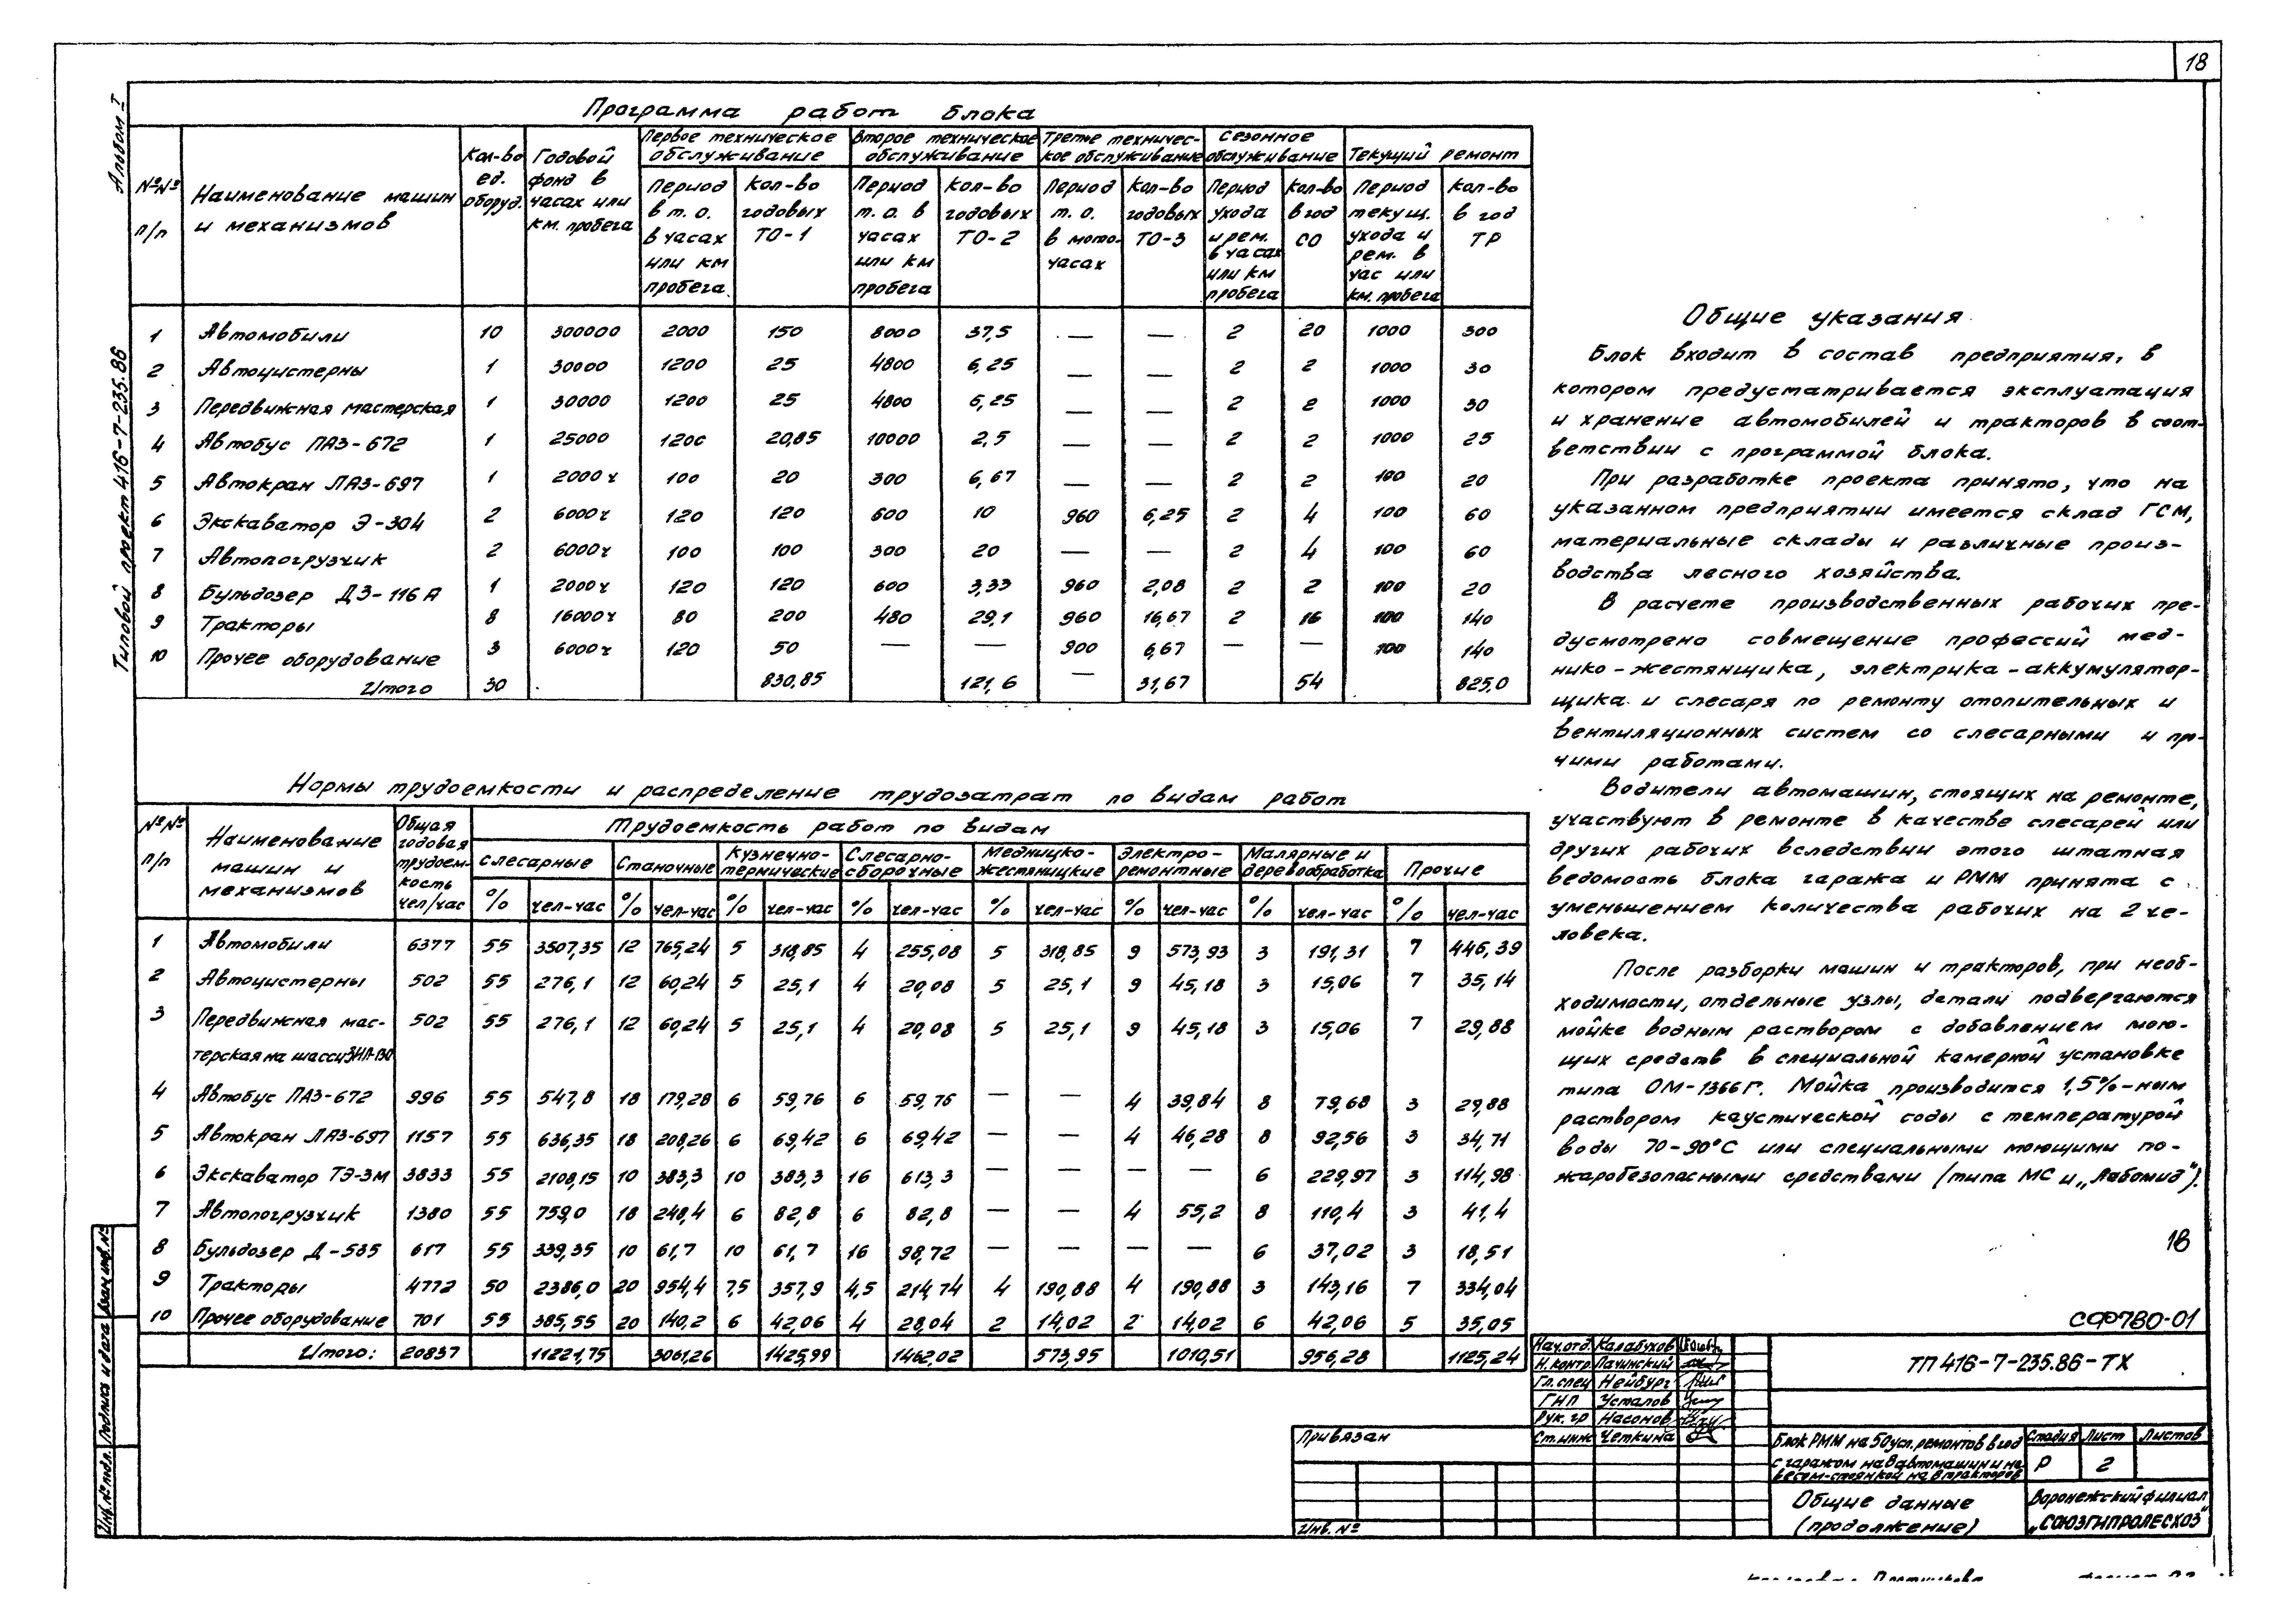 18
Альбом I
Типовой проект 416-7-235.86
Программа работ блока
№№ п/п | Наименование машин и механизмов | Кол-во ед. оборуд. | Годовой фонд в часах или км. пробега | Первое техническое обслуживание | Второе техническое обслуживание | Третье техническое обслуживание | Сезонное обслуживание | Текущий ремонт
Период в т. о. в часах или км пробега | Кол-во годовых ТО-1 | Период т. о. в часах или км пробега | Кол-во годовых ТО-2 | Период т. о. в мото-часах | Кол-во годовых ТО-3 | Период ухода и рем. в часах или км пробега | Кол-во в год СО | Период текущ. ухода и рем. в час или км. пробега | Кол-во в год ТР
1 Автомобили 10 300000 2000 150 8000 37,5 — — 2 20 1000 300
2 Автоцистерны 1 30000 1200 25 4800 6,25 — — 2 2 1000 30
3 Передвижная мастерская 1 30000 1200 25 4800 6,25 — — 2 2 1000 30
4 Автобус ПАЗ-672 1 25000 1200 20,85 10000 2,5 — — 2 2 1000 25
5 Автокран ЛАЗ-697 1 2000ч 100 20 300 6,67 — — 2 2 100 20
6 Экскаватор Э-304 2 6000ч 120 120 600 10 960 6,25 2 4 100 60
7 Автопогрузчик 2 6000ч 100 100 300 20 — — 2 4 100 60
8 Бульдозер ДЗ-116А 1 2000ч 120 120 600 3,33 960 2,08 2 2 100 20
9 Тракторы 8 16000ч 80 200 480 29,1 960 16,67 2 16 100 140
10 Прочее оборудование 3 6000ч 120 50 — — 900 6,67 — — 100 140
Итого 30 830,85 121,6 — 31,67 54 825,0
Нормы трудоемкости и распределение трудозатрат по видам работ
№№ п/п | Наименование машин и механизмов | Общая годовая трудоем-кость чел/час | Трудоемкость работ по видам
Слесарные | Станочные | Кузнечно-термические | Слесарно-сборочные | Медницко-жестяницкие | Электро-ремонтные | Малярные и деревообработка | Прочие
% чел-час % чел-час % чел-час % чел-час % чел-час % чел-час % чел-час % чел-час
1 Автомобили 6377 55 3507,35 12 765,24 5 318,85 4 255,08 5 318,85 9 573,93 3 191,31 7 446,39
2 Автоцистерны 502 55 276,1 12 60,24 5 25,1 4 20,08 5 25,1 9 45,18 3 15,06 7 35,14
3 Передвижная мас- 502 55 276,1 12 60,24 5 25,1 4 20,08 5 25,1 9 45,18 3 15,06 7 29,88
терская на шасси ЗИЛ-130
4 Автобус ПАЗ-672 996 55 547,8 18 179,28 6 59,76 6 59,76 — — 4 39,84 8 79,68 3 29,88
5 Автокран ЛАЗ-697 1157 55 636,35 18 208,26 6 69,42 6 69,42 — — 4 46,28 8 92,56 3 34,71
6 Экскаватор ТЭ-3М 3833 55 2108,15 10 383,3 10 383,3 16 613,3 — — — — 6 229,97 3 114,98
7 Автопогрузчик 1380 55 759,0 18 248,4 6 82,8 6 82,8 — — 4 55,2 8 110,4 3 41,4
8 Бульдозер Д-535 617 55 339,35 10 61,7 10 61,7 16 98,72 — — — — 6 37,02 3 18,51
9 Тракторы 4772 50 2386,0 20 954,4 7,5 357,9 4,5 214,74 4 190,88 4 190,88 3 143,16 7 334,04
10 Прочее оборудование 701 55 385,55 20 140,2 6 42,06 4 28,04 2 14,02 2 14,02 6 42,06 5 35,05
Итого: 20837 11221,75 3061,26 1425,99 1462,02 573,95 1010,51 956,28 1125,24
Общие указания
Блок входит в состав предприятия, в
котором предусматривается эксплуатация
и хранение автомобилей и тракторов в соот-
ветствии с программой блока.
При разработке проекта принято, что на
указанном предприятии имеется склад ГСМ,
материальные склады и различные произ-
водства лесного хозяйства.
В расчете производственных рабочих пре-
дусмотрено совмещение профессий мед-
нико-жестянщика, электрика-аккумулятор-
щика и слесаря по ремонту отопительных и
вентиляционных систем со слесарными и про-
чими работами.
Водители автомашин, стоящих на ремонте,
участвуют в ремонте в качестве слесарей или
других рабочих вследствии этого штатная
ведомость блока гаража и РММ принята с
уменьшением количества рабочих на 2 че-
ловека.
После разборки машин и тракторов, при необ-
ходимости, отдельные узлы, детали подвергаются
мойке водным раствором с добавлением мою-
щих средств в специальной камерной установке
типа ОМ-1366Г. Мойка производится 1,5%-ным
раствором каустической соды с температурой
воды 70-90°С или специальными моющими по-
жаробезопасными средствами (типа МС и „Лабомид").
18
СФ780-01
Нач.отд. Калабухов
Н.контр. Лачинский
Гл.спец Нейбург
ГИП Усталов
Рук.гр Насонов
Ст.инж Четкина
ТП 416-7-235.86-ТХ
Привязан
Инв. №
Блок РММ на 50 усл. ремонтов в год
с гаражом на 8 автомашин и на-
весом-стоянкой на 8 тракторов
Стадия Лист Листов
Р 2
Общие данные
(продолжение)
Воронежский филиал
„СОЮЗГИПРОЛЕСХОЗ"
Инв.№ подл. Подпись и дата Взам.инв.№